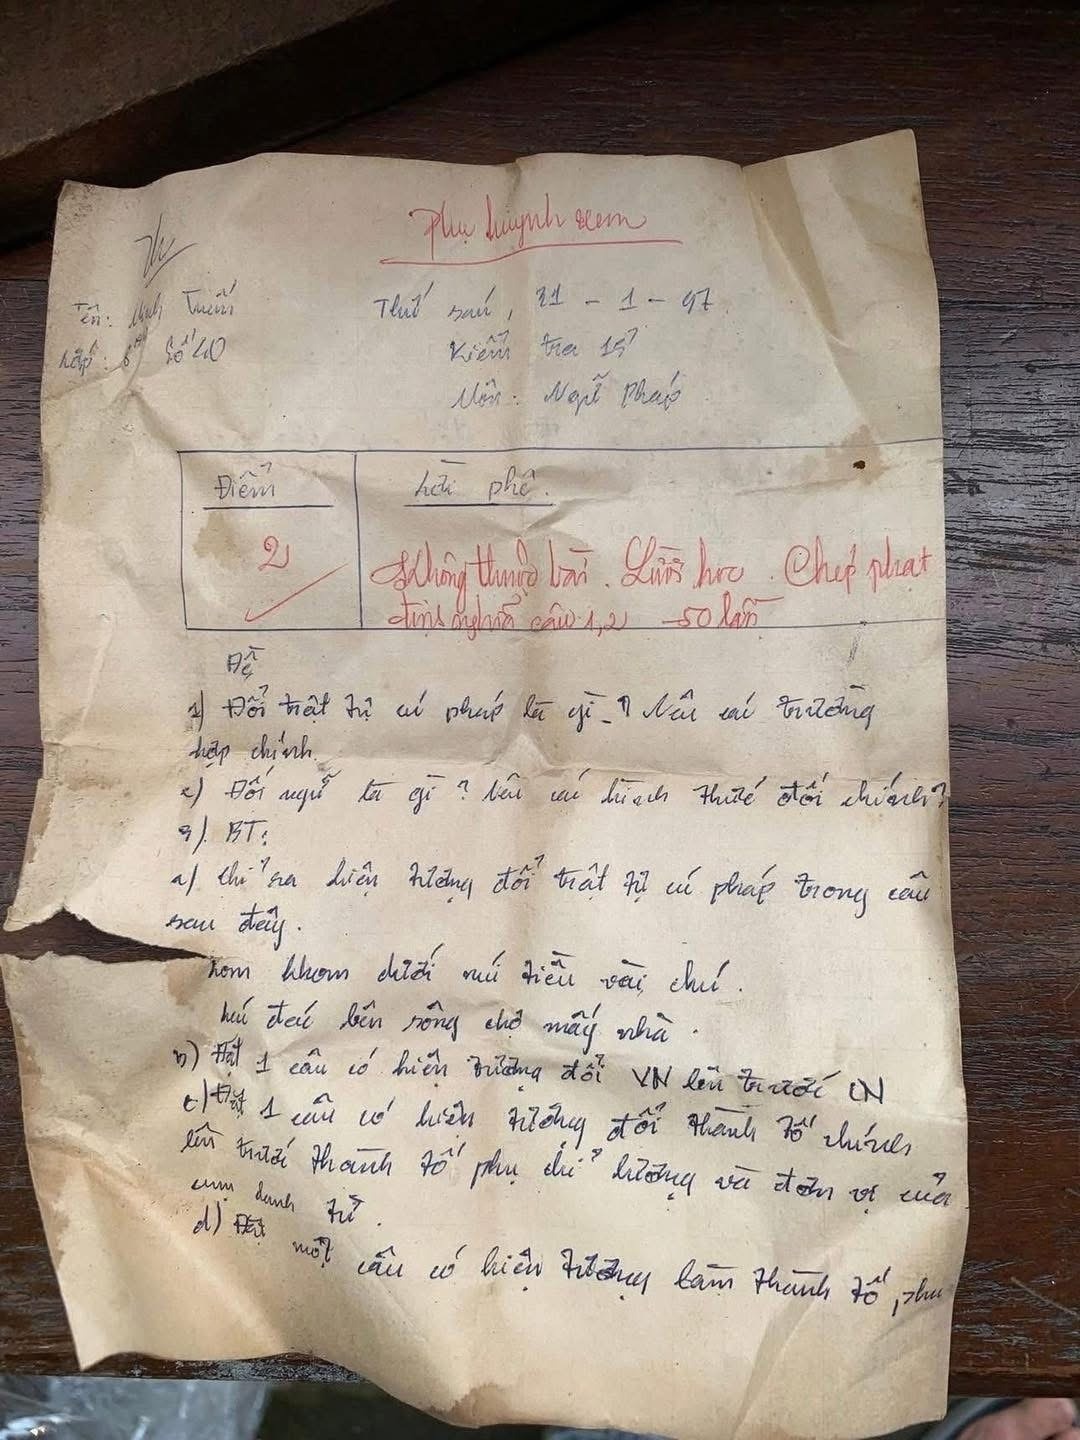 Phụ huynh xem
Tên: Minh
Lớp: 6 Số 40
Thứ sáu, 31 - 1 - 97
Kiểm tra 15'
Môn: Ngữ Pháp
Điểm
Lời phê.
2
Không thuộc bài. Lười học. Chép phạt
định nghĩa câu 1, 2 50 lần
Đề
1) Đổi trật tự cú pháp là gì ? Nêu các trường
hợp chính.
2) Đối ngữ là gì ? Nêu các hình thức đối chính?
3) BT:
a) Chỉ ra hiện tượng đổi trật tự cú pháp trong câu
sau đây.
Lom khom dưới núi tiều vài chú.
Lác đác bên sông chợ mấy nhà.
b) Đặt 1 câu có hiện tượng đổi VN lên trước CN
c) Đặt 1 câu có hiện tượng đổi thành tố chính
lên trước thành tố phụ chỉ lượng và đơn vị của
cụm danh từ.
d) Đặt một câu có hiện tượng làm thành tố phụ